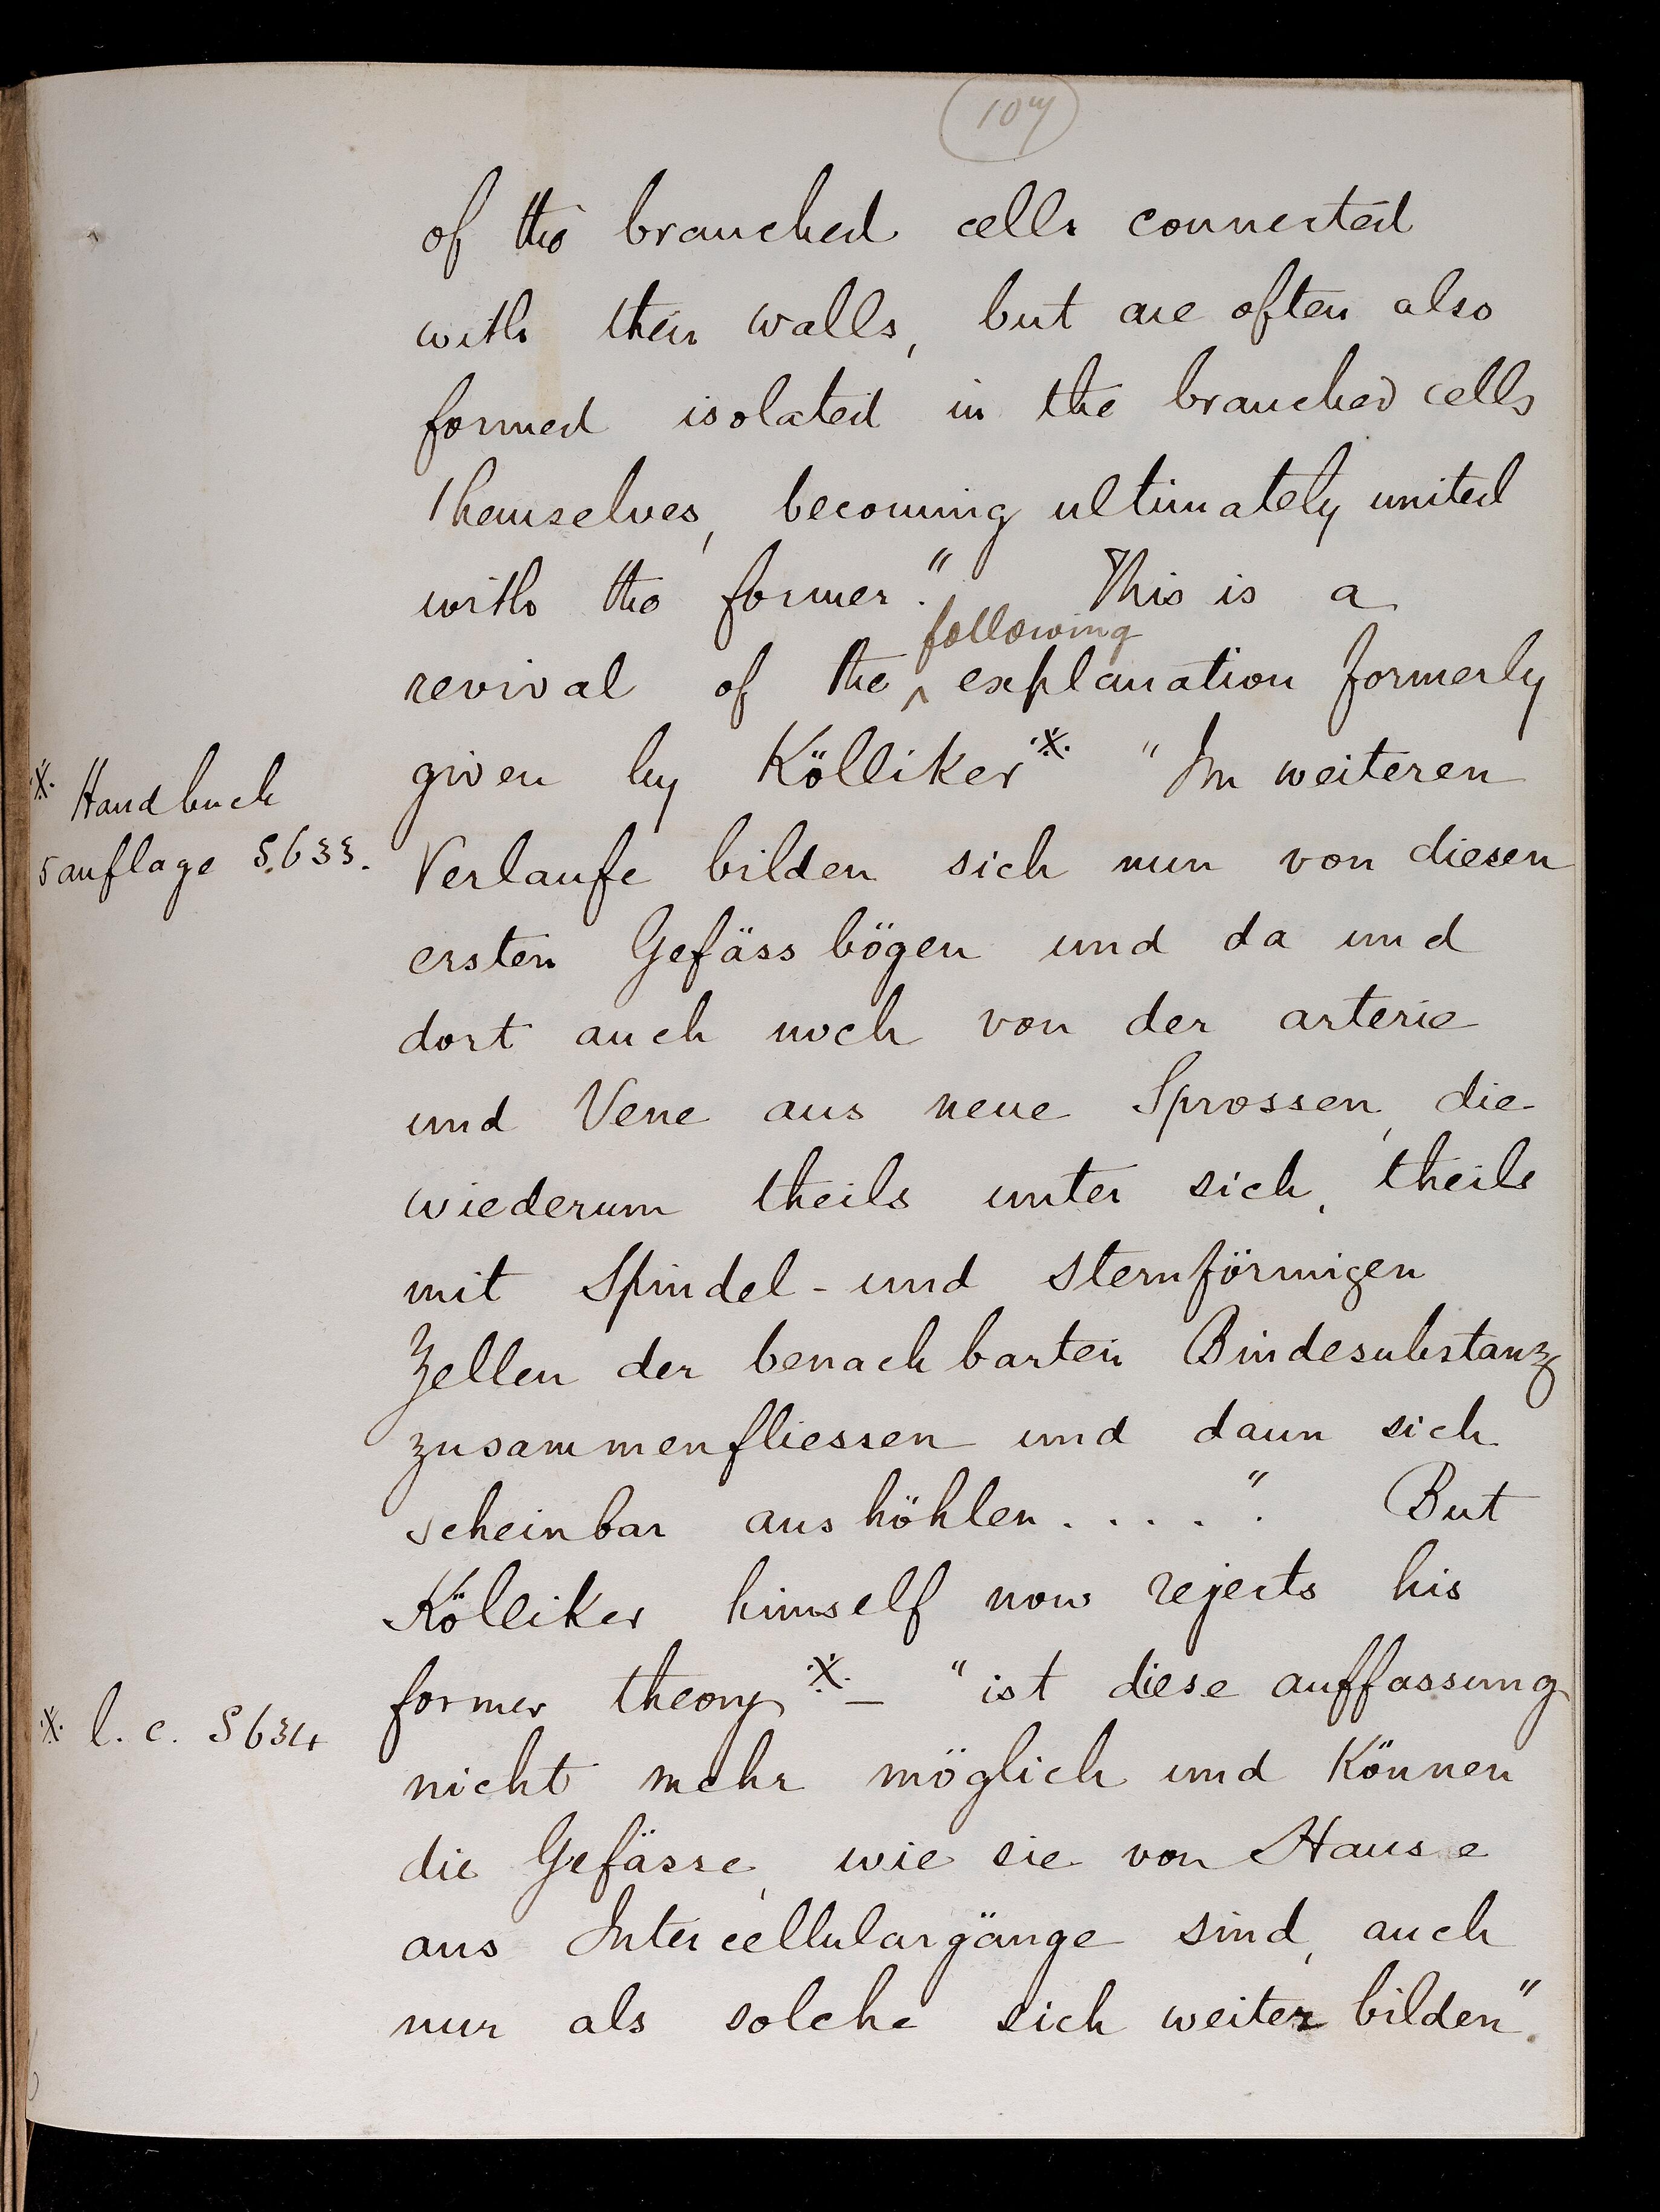 107
of the branched cells connected
with their walls, but are often also
formed isolated in the branched cells
themselves, becoming ultimately united
with the former." This is a
following
revival of the ^ explanation formerly
given by Kölliker※ "Im weiteren
※ Handbuch
5 auflage S. 633.
Verlaufe bilden sich nun von diesen
ersten Gefäss bögen und da und
dort auch noch von der arterie
und Vene aus neue Sprossen, die
wiederum theils unter sich, theils
mit Spindel - und sternförmigen
Zellen der benachbarten Bindesubstanz
zusammenfliessen und dann sich
scheinbar aushöhlen . . . . ." But
Kölliker himself now rejects his
former theory ※ — "ist diese auffassung
※ l. c. S 634
nicht mehr möglich und Können
die Gefässe, wie sie von Hause
aus Intercellulargänge sind, auch
nur als solche sich weiter bilden".